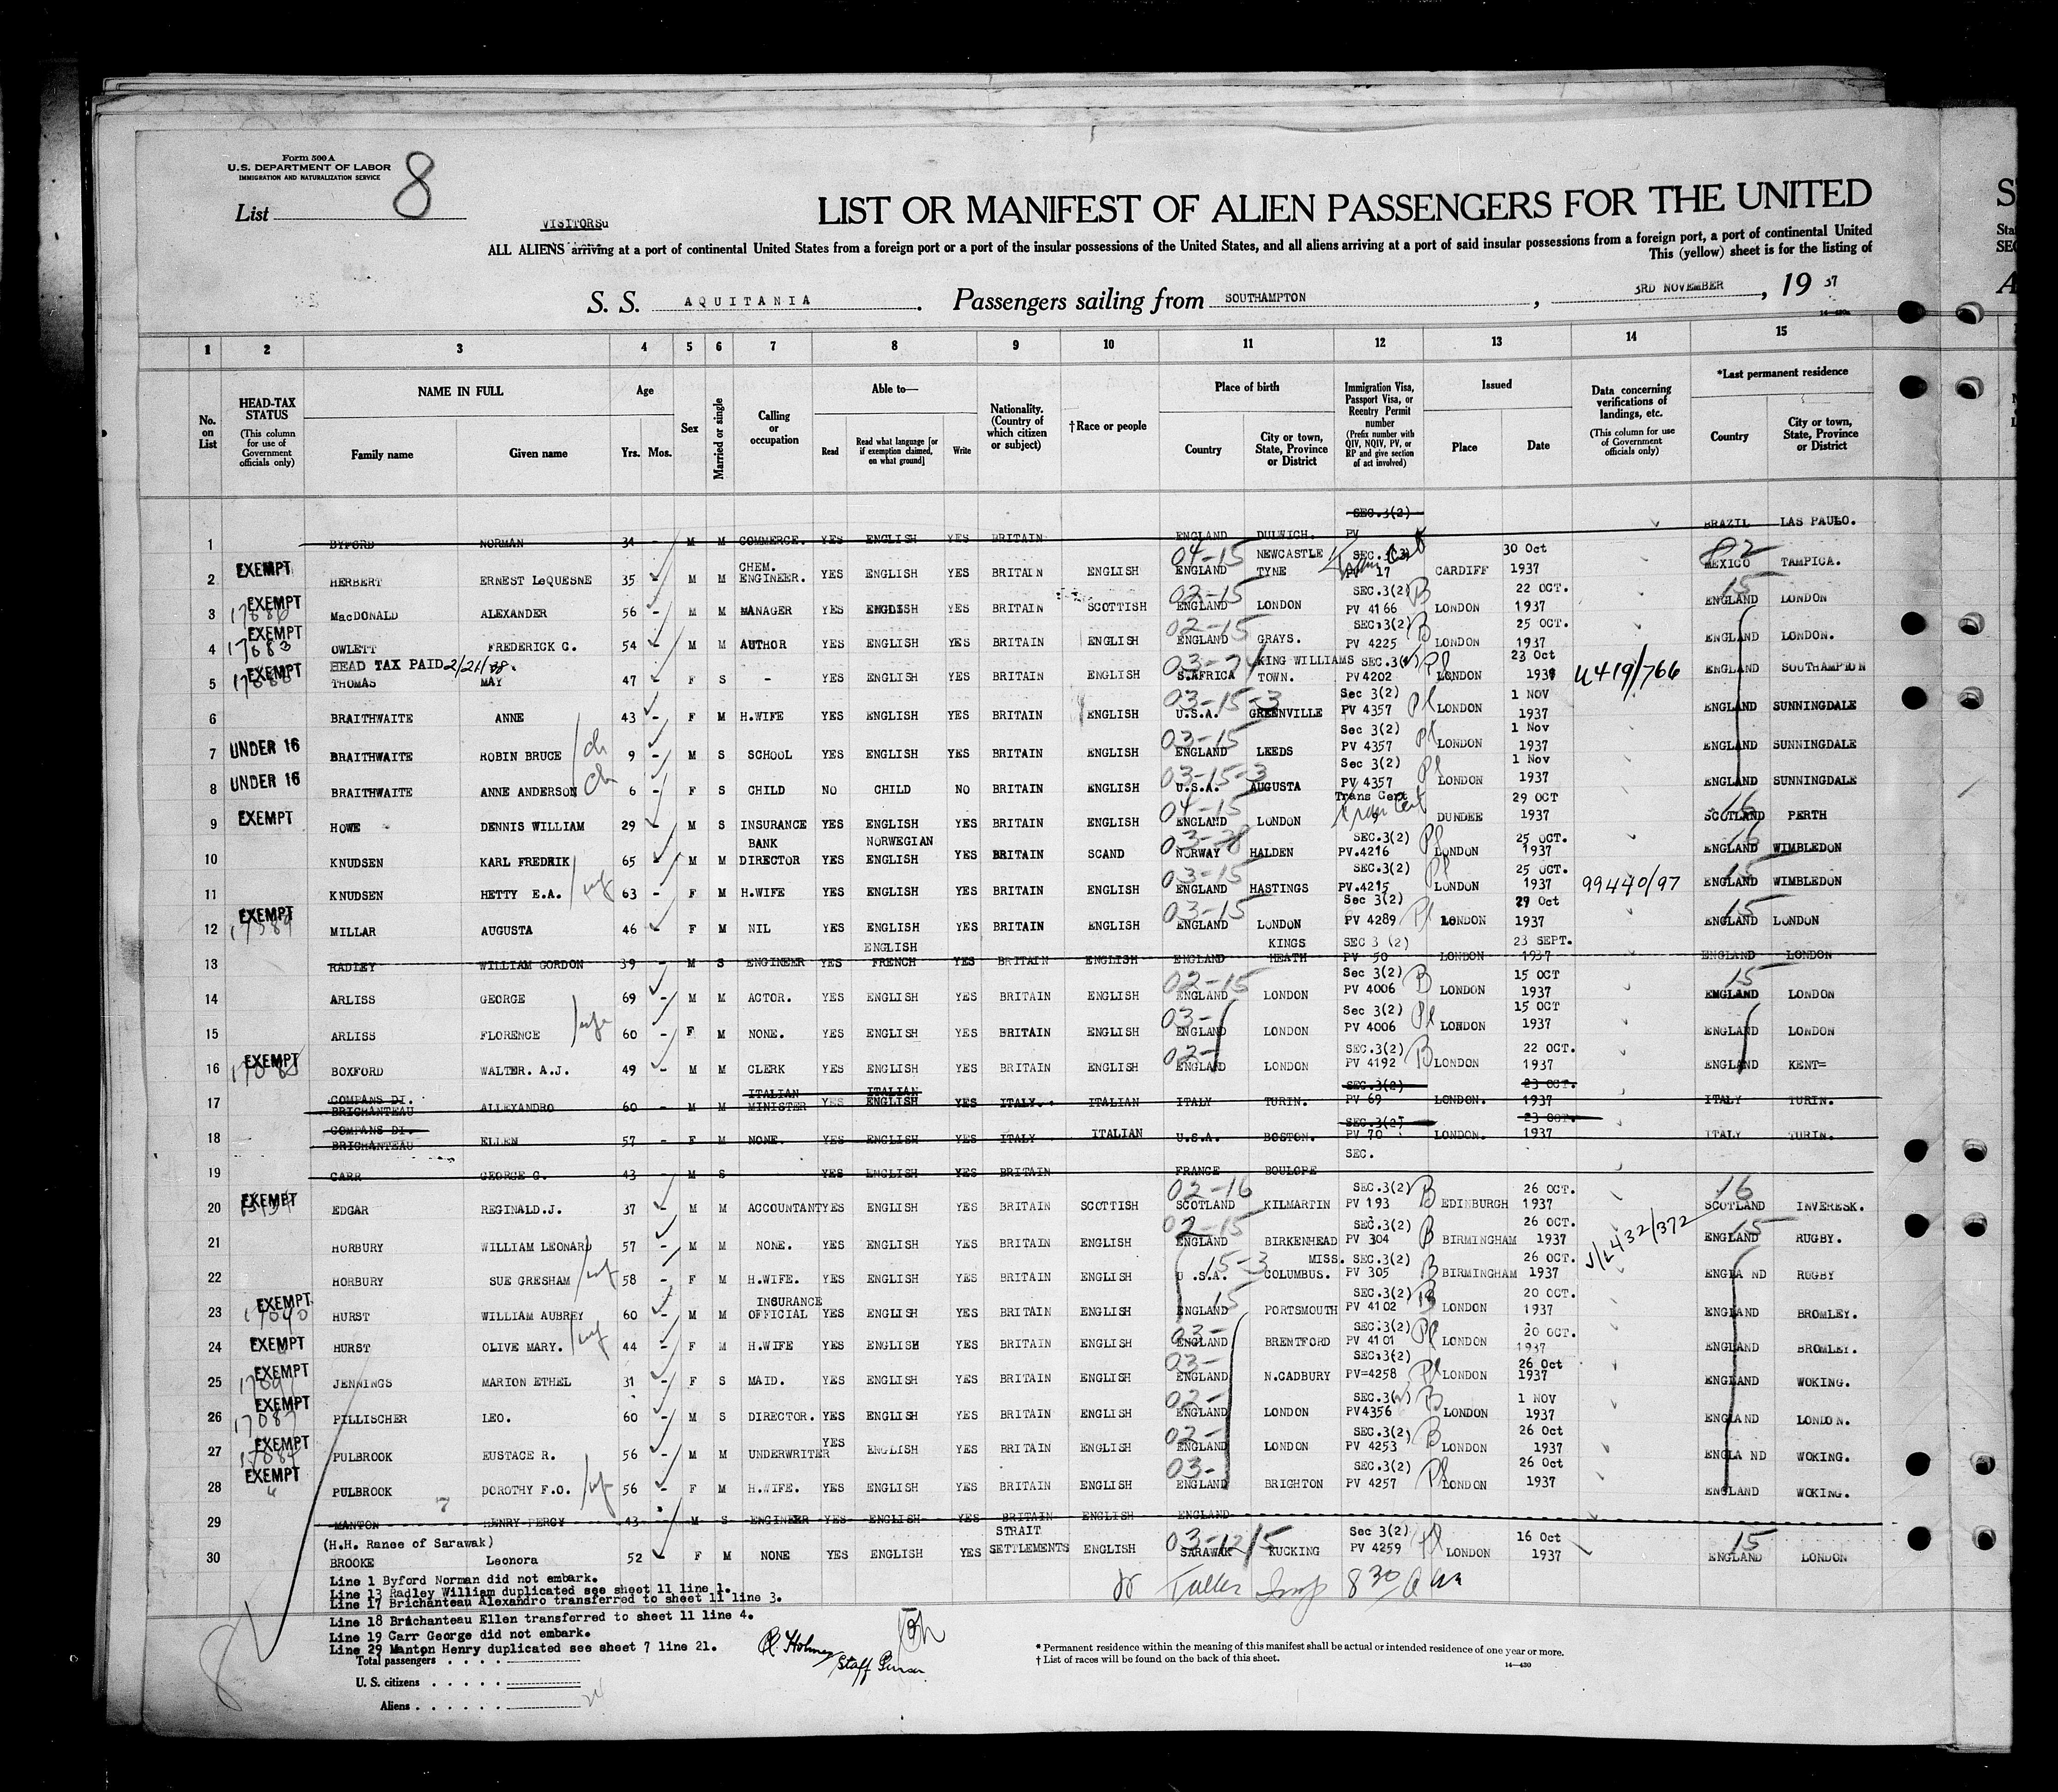 Form 500 A
U.S. DEPARTMENT OF LABOR
IMMIGRATION AND NATURALIZATION SERVICE
List 8
VISITORS
LIST OR MANIFEST OF ALIEN PASSENGERS FOR THE UNITED
ALL ALIENS arriving at a port of continental United States from a foreign port or a port of the insular possessions of the United States, and all aliens arriving at a port of said insular possessions from a foreign port, a port of continental United
This (yellow) sheet is for the listing of
S. S. AQUITANIA. Passengers sailing from SOUTHAMPTON, 3RD NOVEMBER, 19 37
1 2 3 4 5 6 7 8 9 10 11 12 13 14 15
No. on List
HEAD-TAX STATUS
(This column for use of Government officials only)
NAME IN FULL
Family name Given name
Age
Yrs. Mos.
Sex
Married or single
Calling or occupation
Able to—
Read
Read what language [or if exemption claimed, on what ground]
Write
Nationality. (Country of which citizen or subject)
†Race or people
Place of birth
Country
City or town, State, Province or District
Immigration Visa, Passport Visa, or Reentry Permit number
(Prefix number with QIV, NQIV, PV, or RP and give section of act involved)
Issued
Place Date
Data concerning verifications of landings, etc.
(This column for use of Government officials only)
*Last permanent residence
Country
City or town, State, Province or District
1 BYFORD NORMAN 34 - M M COMMERCE. YES ENGLISH YES BRITAIN ENGLAND DULWICH. SEC.3(2) PV BRAZIL LAS PAULO.
2 EXEMPT HERBERT ERNEST LeQUESNE 35 - M M CHEM. ENGINEER. YES ENGLISH YES BRITAIN ENGLISH 04-15 ENGLAND NEWCASTLE TYNE PV 17 CARDIFF 30 Oct 1937 82 MEXICO TAMPICA.
3 EXEMPT MacDONALD ALEXANDER 56 - M M MANAGER YES ENGLISH YES BRITAIN SCOTTISH 02-15 ENGLAND LONDON SEC.3(2) PV 4166 B LONDON 22 OCT. 1937 15 ENGLAND LONDON
4 EXEMPT 17683 OWLETT FREDERICK C. 54 - M M AUTHOR YES ENGLISH YES BRITAIN ENGLISH 02-15 ENGLAND GRAYS. SEC.3(2) PV 4225 B LONDON 25 OCT. 1937 ENGLAND LONDON.
HEAD TAX PAID 2/21/38.
5 EXEMPT THOMAS MAY 47 - F S - YES ENGLISH YES BRITAIN ENGLISH 03-74 S.AFRICA KING WILLIAMS TOWN. SEC.3( ) PV 4202 Pl LONDON 23 Oct 1937 U419/766 ENGLAND SOUTHAMPTON
6 BRAITHWAITE ANNE 43 - F M H.WIFE YES ENGLISH YES BRITAIN ENGLISH 03-15-3 U.S.A. GREENVILLE Sec 3(2) PV 4357 Pl LONDON 1 NOV 1937 ENGLAND SUNNINGDALE
7 UNDER 16 BRAITHWAITE ROBIN BRUCE ch 9 - M S SCHOOL YES ENGLISH YES BRITAIN ENGLISH 03-15 ENGLAND LEEDS Sec 3(2) PV 4357 Pl LONDON 1 Nov 1937 ENGLAND SUNNINGDALE
8 UNDER 16 BRAITHWAITE ANNE ANDERSON ch 6 - F S CHILD NO CHILD NO BRITAIN ENGLISH 03-15-3 U.S.A. AUGUSTA Sec 3(2) PV 4357 Pl LONDON 1 Nov 1937 ENGLAND SUNNINGDALE
9 EXEMPT HOWE DENNIS WILLIAM 29 - M S INSURANCE YES ENGLISH YES BRITAIN ENGLISH 04-15 ENGLAND LONDON Trans Cert Tran Cert DUNDEE 29 OCT 1937 16 SCOTLAND PERTH
10 KNUDSEN KARL FREDRIK 65 - M M BANK DIRECTOR YES NORWEGIAN ENGLISH YES BRITAIN SCAND 03-28 NORWAY HALDEN SEC.3(2) PV.4216 Pl LONDON 25 OCT. 1937 15 ENGLAND WIMBLEDON
11 KNUDSEN HETTY E.A. wf 63 - F M H.WIFE YES ENGLISH YES BRITAIN ENGLISH 03-15 ENGLAND HASTINGS SEC.3(2) PV.4215 Pl LONDON 25 OCT. 1937 99440/97 15 ENGLAND WIMBLEDON
12 EXEMPT MILLAR AUGUSTA 46 - F M NIL YES ENGLISH YES BRITAIN ENGLISH 03-15 ENGLAND LONDON Sec 3(2) PV 4289 Pl LONDON 29 Oct 1937 15 ENGLAND LONDON
13 RADLEY WILLIAM GORDON 39 - M S ENGINEER YES ENGLISH FRENCH YES BRITAIN ENGLISH ENGLAND KINGS HEATH SEC 3 (2) PV 50 LONDON 23 SEPT. 1937 ENGLAND LONDON
14 ARLISS GEORGE 69 - M M ACTOR. YES ENGLISH YES BRITAIN ENGLISH 02-15 ENGLAND LONDON Sec 3(2) PV 4006 B LONDON 15 OCT 1937 15 ENGLAND LONDON
15 ARLISS FLORENCE wfe 60 - F M NONE. YES ENGLISH YES BRITAIN ENGLISH 03- ENGLAND LONDON Sec 3(2) PV 4006 Pl LONDON 15 OCT 1937 ENGLAND LONDON
16 EXEMPT BOXFORD WALTER. A.J. 49 - M M CLERK YES ENGLISH YES BRITAIN ENGLISH 02- ENGLAND LONDON SEC.3(2) PV 4192 B LONDON 22 OCT. 1937 ENGLAND KENT=
17 COMPANS DI. BRICHANTEAU ALLEXANDRO 60 - M M ITALIAN MINISTER YES ITALIAN ENGLISH YES ITALY. ITALIAN ITALY TURIN. SEC.3(2) PV 69 LONDON. 23 OCT. 1937 ITALY TURIN.
18 COMPANS DI. BRICHANTEAU ELLEN 57 - F M NONE YES ENGLISH YES ITALY ITALIAN U.S.A. BOSTON. SEC.3(2) PV 70 LONDON. 23 OCT. 1937 ITALY TURIN.
19 CARR GEORGE G. 43 - M S YES ENGLISH YES BRITAIN FRANCE BOULOPE SEC.
20 EXEMPT EDGAR REGINALD.J. 37 - M M ACCOUNTANT YES ENGLISH YES BRITAIN SCOTTISH 02-16 SCOTLAND KILMARTIN SEC.3(2) PV 193 B EDINBURGH 26 OCT. 1937 16 SCOTLAND INVERESK.
21 HORBURY WILLIAM LEONARD 57 - M M NONE. YES ENGLISH YES BRITAIN ENGLISH 02-15 ENGLAND BIRKENHEAD SEC.3(2) PV 304 B BIRMINGHAM 26 OCT. 1937 V/L432/372 15 ENGLAND RUGBY.
22 HORBURY SUE GRESHAM wf 58 - F M H.WIFE. YES ENGLISH YES BRITAIN ENGLISH 15-3 U.S.A. MISS. COLUMBUS. SEC.3(2) PV 305 B BIRMINGHAM 26 OCT. 1937 ENGLA ND RUGBY
23 EXEMPT 17090 HURST WILLIAM AUBREY 60 - M M INSURANCE OFFICIAL YES ENGLISH YES BRITAIN ENGLISH 15 ENGLAND PORTSMOUTH SEC.3(2) PV 4102 B LONDON 20 OCT. 1937 ENGLAND BROMLEY.
24 EXEMPT HURST OLIVE MARY. wf 44 - F M H.WIFE YES ENGLISH YES BRITAIN ENGLISH 03- ENGLAND BRENTFORD SEC.3(2) PV 4101 Pl LONDON 20 OCT. 1937 ENGLAND BROMLEY.
25 EXEMPT JENNINGS MARION ETHEL 31 - F S MAID. YES ENGLISH YES BRITAIN ENGLISH 03- ENGLAND N.CADBURY SEC.3(2) PV=4258 Pl LONDON 26 Oct 1937 ENGLAND WOKING.
26 EXEMPT 17087 PILLISCHER LEO. 60 - M S DIRECTOR. YES ENGLISH YES BRITAIN ENGLISH 02- ENGLAND LONDON SEC.3( ) PV4356 B LONDON 1 NOV 1937 ENGLAND LONDON.
27 EXEMPT 17084 PULBROOK EUSTACE R. 56 - M M UNDERWRITER YES ENGLISH YES BRITAIN ENGLISH 02- ENGLAND LONDON SEC.3(2) PV 4253 B LONDON 26 Oct 1937 ENGLA ND WOKING.
28 EXEMPT PULBROOK DOROTHY F.O. wf 56 - F M H.WIFE. YES ENGLISH YES BRITAIN ENGLISH 03- ENGLAND BRIGHTON SEC.3(2) PV 4257 Pl LONDON 26 Oct 1937 ENGLAND WOKING.
29 MANTON 7 HENRY PERCY 43 - M S ENGINERR YES ENGLISH YES BRITAIN ENGLISH ENGLAND
(H.H. Ranee of Sarawak)
30 BROOKE Leonora 52 - F M NONE YES ENGLISH YES STRAIT SETTLEMENTS ENGLISH 03-12/15 SARAWAK KUCKING Sec 3(2) PV 4259 Pl LONDON 16 Oct 1937 15 ENGLAND LONDON
Line 1 Byford Norman did not embark.
Line 13 Radley William duplicated see sheet 11 line 1.
Line 17 Brichanteau Alexandro transferred to sheet 11 line 3.
Line 18 Brichanteau Ellen transferred to sheet 11 line 4.
Line 19 Carr George did not embark.
Line 29 Manton Henry duplicated see sheet 7 line 21.
Total passengers
U. S. citizens
Aliens 24
Staff Purser
Fuller Insp 8 30 A M
* Permanent residence within the meaning of this manifest shall be actual or intended residence of one year or more.
† List of races will be found on the back of this sheet.
14—430